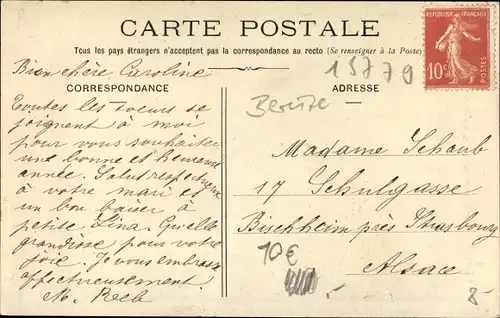 CARTE POSTALE
Tous les pays étrangers n'acceptent pas la correspondance au recto (Se renseigner à la Poste)
REPUBLIQUE FRANÇAISE
10c
POSTES
15779
Bien chère Caroline
CORRESPONDANCE
ADRESSE
Toutes les soeurs se
joignent à moi
pour vous souhaiter
une bonne et heureuse
année. Salut respectueux
à votre mari et
un bon baiser à
petite Lina. Qu'elle
grandisse pour votre
joie. Je vous embrasse
affectueusement.
M.
Madame Schaub
17 Schulgasse
Bischheim près Strasbourg
Alsace
10€
8-